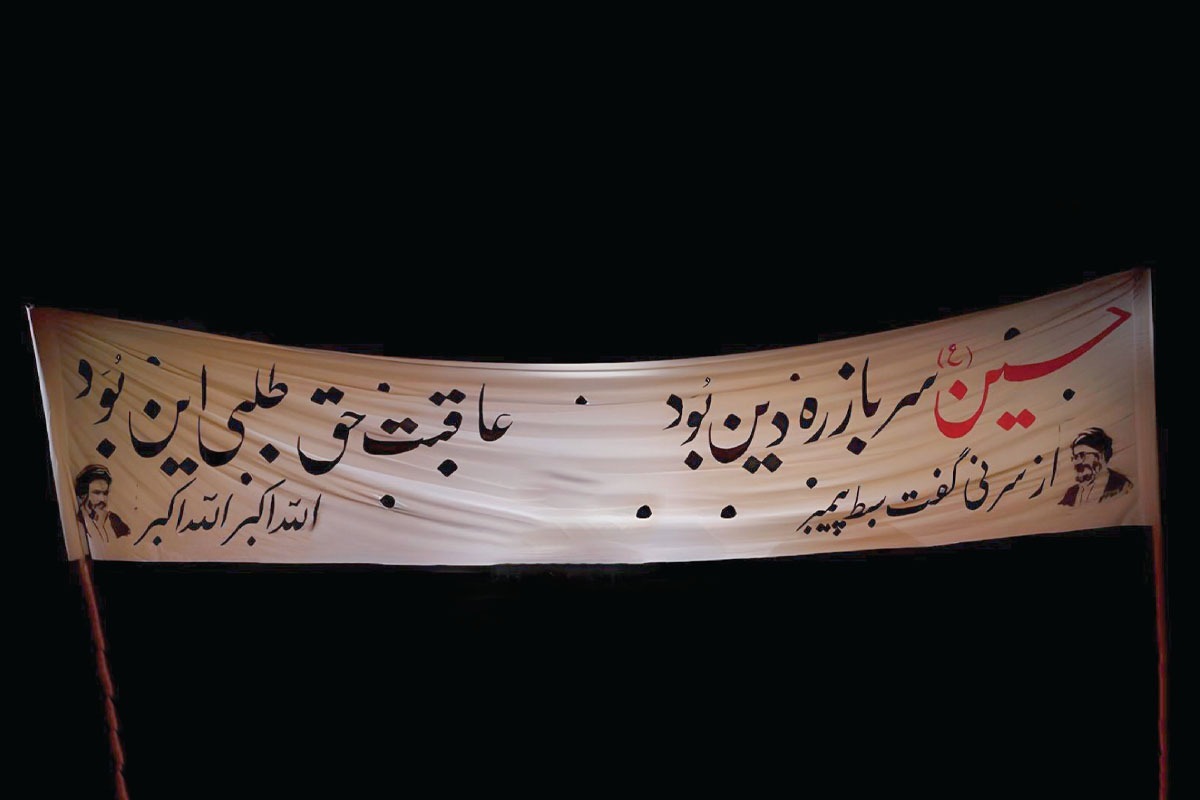 حسین (ع) سرباز ره دین بُوَد عاقبت حق طلبی این بُوَد
از سر نی گفت سبط پیمبر الله اکبر الله اکبر